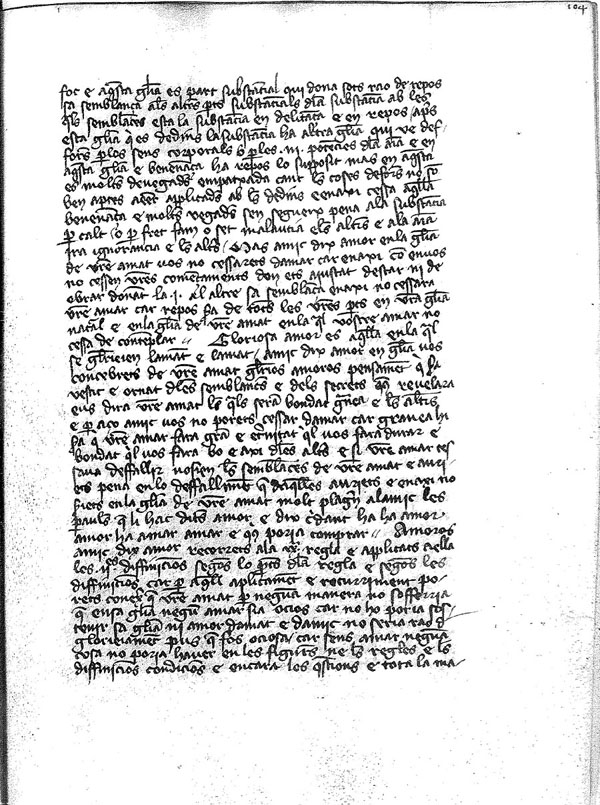 104
foc e aq̄sta gl̄ia es part substācial qui dona sots rao de repos
sa semblança als altres pts substācials dla substācia ab les
qls semblāces esta la substācia en delitaça e en repos aps
esta gl̄ia q̄ es dedins la substācia ha altra gl̄ia qui ve def
fores p̱ los sens corporals e p̱ les .iii. potēcies dla aīa e en
aq̄sta gl̄ia e benenāca ha repos lo supposit mas en aq̄sta
es molts vegades empatxada cant ls coses defors no sō
ben aptes aēt applicades ab ls dedins e en axi cessa aq̄lla
benenāca e molts vegades sen segueix pena a la substācia
p̱ calt o p̱ fret fam o set malautia els altres e a la aīa
ira ignorancia e ls altrs Mas amic dix amor en la gl̄ia
de vr̄e amat vos no cessarets damar car en axi cō en vos
no cessen vr̄es comēcaments don ets ajustat destar ni de
obrar donāt la .i. al altre sa semblāca en axi no cessara
vr̄e amar car repos ha de tots les vr̄es pts en vr̄a gl̄ia
natal e en la gl̄ia de vr̄e amat en la ql vostre amar no
cessa de contēplar Gloriosa amor es aq̄lla en la ql
se gl̄ieien lamat e lamat amic dix amor en gl̄ia vos
concebrets de vr̄e amat gl̄ios amoros pensamēt q̄ sa
vestit e ornat dles semblants e dels secrets qus revelara
eus dira vr̄e amat ls qls sera bondat gr̄aca e ls altrs
e p̱ aço amic vos no porets cessar damar car gran ea hi
ha q̄ vr̄e amar fara gr̄a e et̄nitat ql vos fara durar e
bondat ql vos fara bo e axi dles altrs e si vr̄e amar ces
sava deffallir vos ien ls semblāces de vr̄e amat e auri
ets pena en lo deffallimēt q̄ daq̄lles auriets e en axi no
siets en la gl̄ia de vr̄e amat molt plagr̄ al amic les
paraules q̄ li hac dits amor e dix c̄dant ha ha amor
amor ha amar amar e qus poria comprar Amoros
amic dix amor recorrets a la vi. regla e applicats en ella
les .iis. diffinicios segons lo pcs dla regla e segons les
diffinicios car p̱ aq̄ll aplicamēt e recurrimēt po
rets conex̱ q̄ vr̄e amat p̱ neguna manera no sofferria
q̄ en sa gl̄ia negun amar sia ocios car no ho poria sos
tenir sa gl̄ia ni amor damat e damic no seria rao d
gloriejamēt pus q̄ fos ociosa car sens amar neguna
cosa no poria haver en les figures ne ls regles e ls
diffinicios condicios e encara les qstions e tota la ma